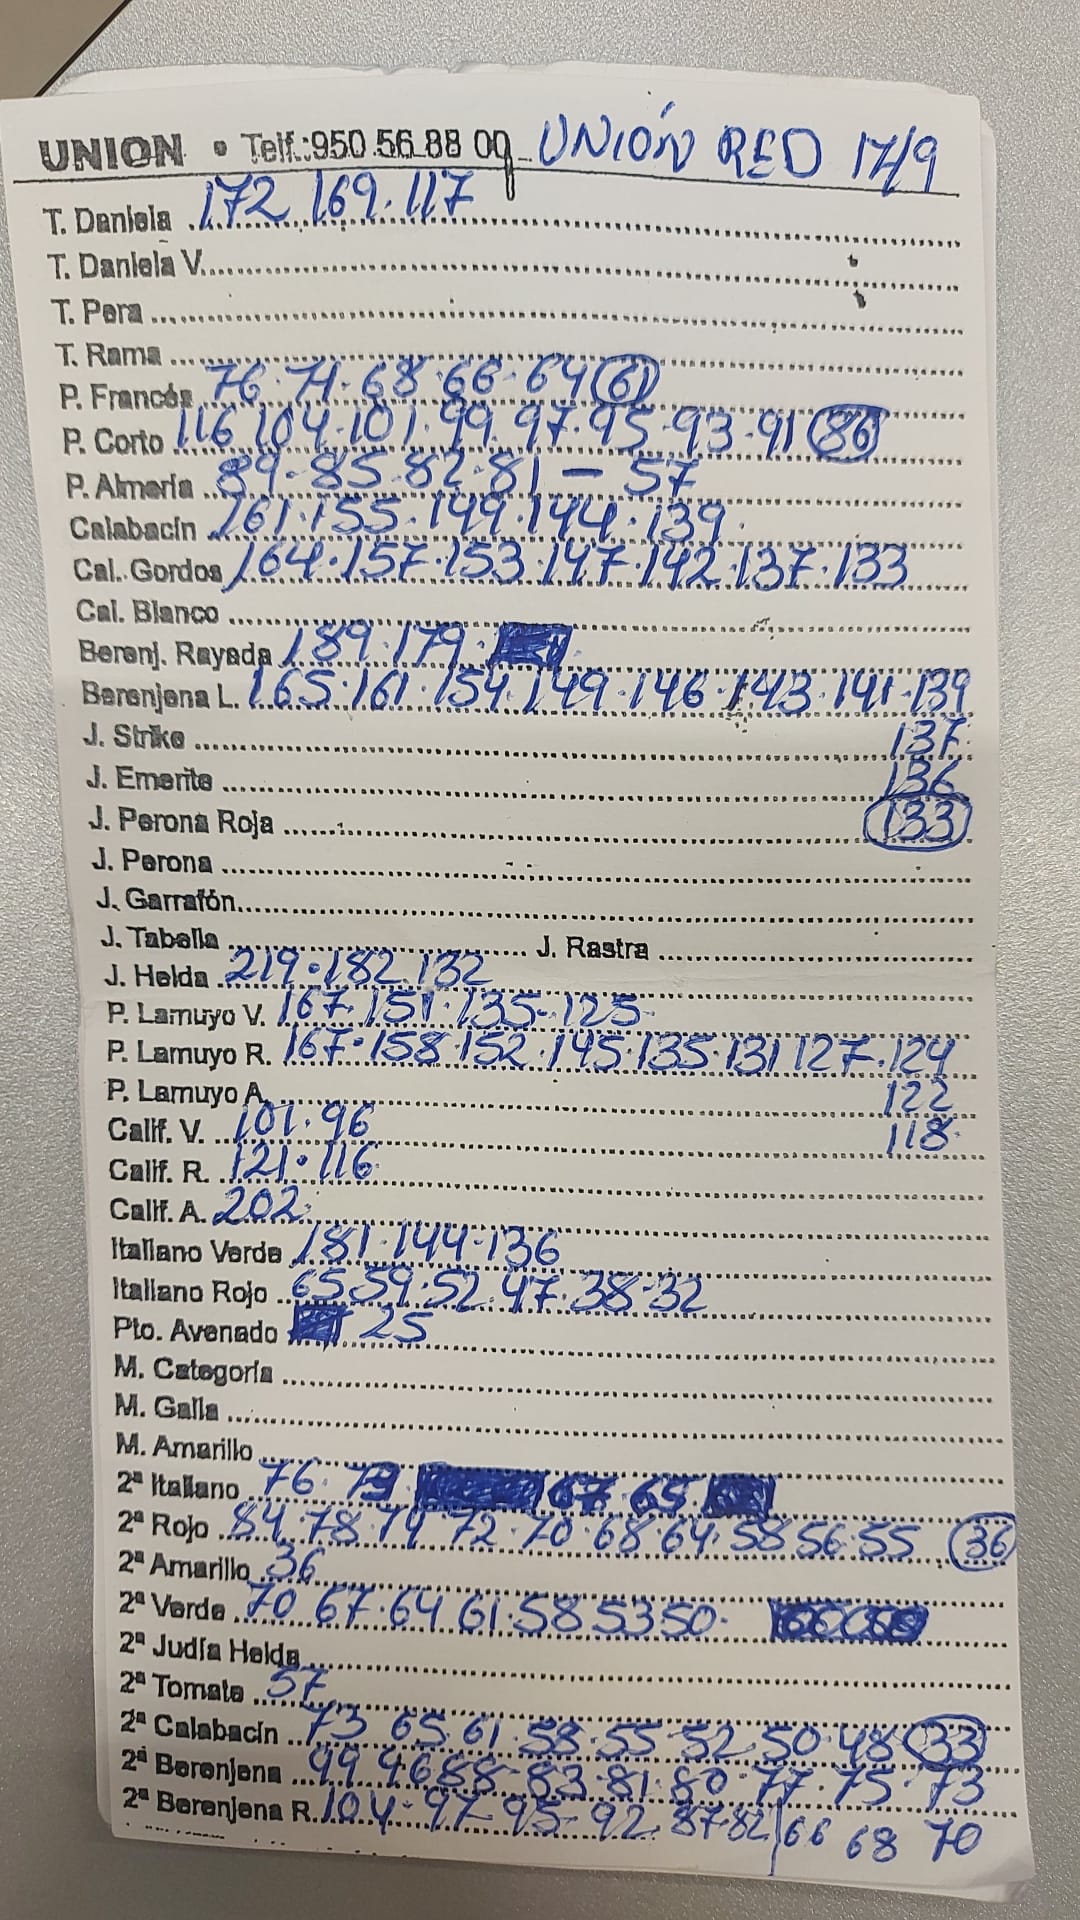 UNION • Telf.: 950 56 88 09 UNIÓN RED 17/9
T. Daniela 172 169. 117
T. Daniela V.
T. Pera
T. Rama
P. Francés 76. 71. 68. 66. 64 (61)
P. Corto 116 104. 101. 99. 97. 95. 93. 91 (86)
P. Almería 89. 85. 82. 81 - 57
Calabacín 161. 155. 149. 144. 139.
Cal. Gordos 164. 157. 153. 147. 142. 137. 133
Cal. Blanco
Berenj. Rayada 189. 179.
Berenjena L. 165. 161. 154. 149. 146. 143. 141. 139
J. Strike 137
J. Emerite 136
J. Perona Roja (133)
J. Perona
J. Garrafón
J. Tabella J. Rastra
J. Helda 219. 182 132
P. Lamuyo V. 167. 151. 135. 125
P. Lamuyo R. 167. 158. 152. 145. 135. 131 127. 124
P. Lamuyo A. 122
Calif. V. 101. 96 118
Calif. R. 121. 116
Calif. A. 202
Italiano Verde 181. 144. 136
Italiano Rojo 65 59. 52. 47. 38. 32
Pto. Avenado 25
M. Categoría
M. Galia
M. Amarillo
2ª Italiano 76. 67. 65.
2ª Rojo 84. 78. 74 72. 70. 68 64. 58 56. 55 (36)
2ª Amarillo 36
2ª Verde 70 67. 64 61. 58 53 50.
2ª Judía Helda
2ª Tomate 57
2ª Calabacín 73 65. 61. 58. 55 52 50. 48 (33)
2ª Berenjena 99 88. 83. 81. 80. 77. 75. 73
2ª Berenjena R. 104. 97. 95. 92. 87. 82 66 68 70